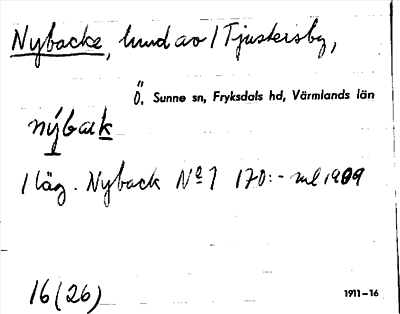 Nybacke, lund av 1 Tjustersby,
Ö. Sunne sn, Fryksdals hd, Värmlands län
nýback
1 läg. Nyback No 1 170:- ml 1909
16(26)
1911-16